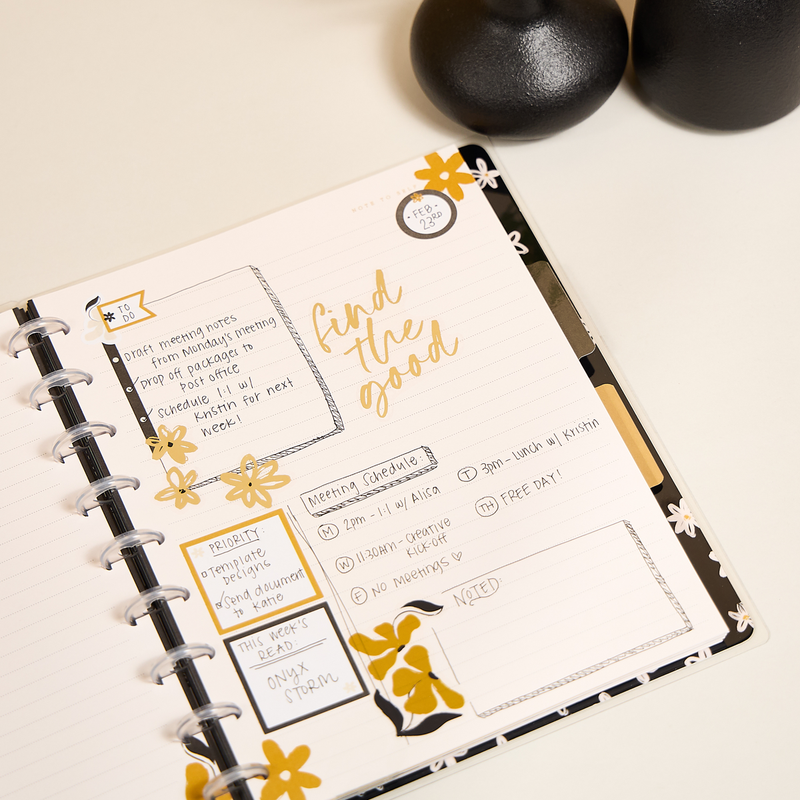 NOTE TO SELF
FEB.
23RD
TO
DO
Draft meeting notes
from Monday's meeting
Drop off packages to
post office
Schedule 1:1 w/
Kristin for next
week!
find
the
good
Meeting Schedule:
M 2pm - 1:1 w/ Alisa
T 3pm - Lunch w/ Kristin
W 11:30AM - Creative
Kick-off
TH FREE DAY!
F NO Meetings
PRIORITY:
Template
Designs
Send document
to Katie
THIS WEEK'S
READ:
ONYX
STORM
NOTES: